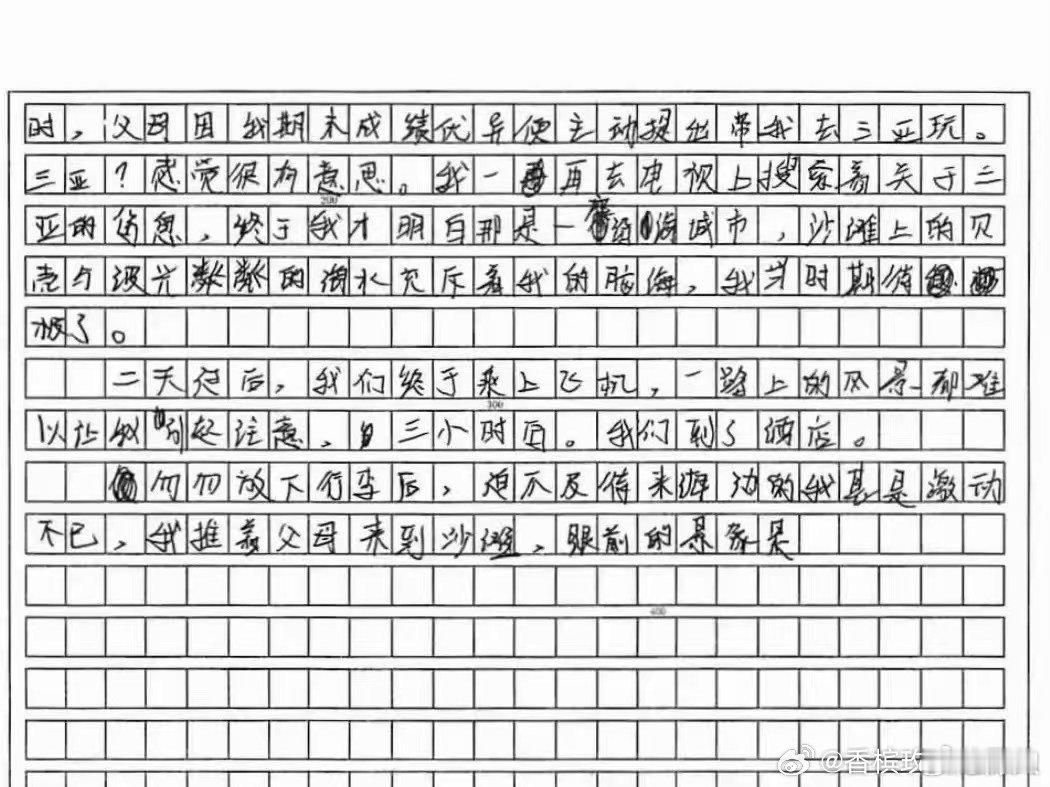 时，父母因我期末成绩优异便主动提出带我去三亚玩。
三亚？感觉很有意思。我一再去电视上搜索着关于三
200
亚的信息，终于我才明白那是一座沿海城市，沙滩上的贝
壳与波光粼粼的海水充斥着我的脑海，我当时期待
极了。
二天过后，我们终于乘上飞机，一路上的风景都难
300
以让我引起注意，三小时后。我们到了酒店。
匆匆放下行李后，迫不及待来海边的我甚是激动
不已，我推着父母来到沙滩，眼前的景象是
400
@香槟玫